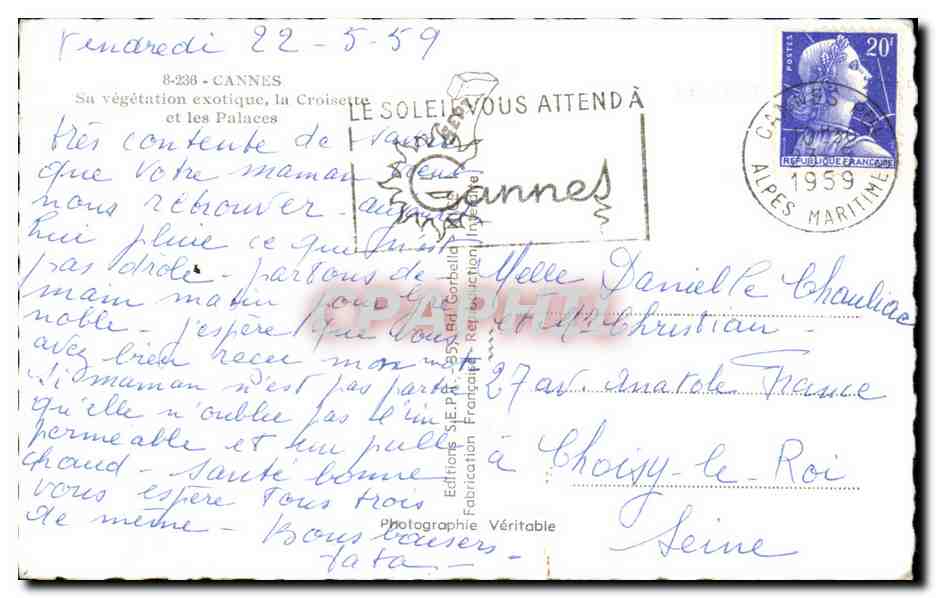 Vendredi 22-5-59
8-236 - CANNES
Sa végétation exotique, la Croisette
et les Palaces
très contente de savoir
que votre maman vient
nous retrouver - aujour
hui pluie ce qui n'est
pas drôle - partons de
main matin pour Gre
noble - j'espère que vous
avez bien reçu mon mot
Si maman n'est pas partie
qu'elle n'oublie pas l'im
perméable et un pull
chaud - Santé bonne
vous espère tous trois
de même - Bons baisers -
Tata -
LE SOLEIL VOUS ATTEND À
Cannes
POSTES
20F
REPUBLIQUE FRANCAISE
CANNES
1959
ALPES MARITIMES
Editions S.E.P.T. - 35, Bd Gorbella
Fabrication Française - Reproduction Interdite
CPAPHIL
Melle Danielle Chauliac
et Mr Christian -
27 av. Anatole France
à Choisy-le-Roi
Seine
Photographie Véritable